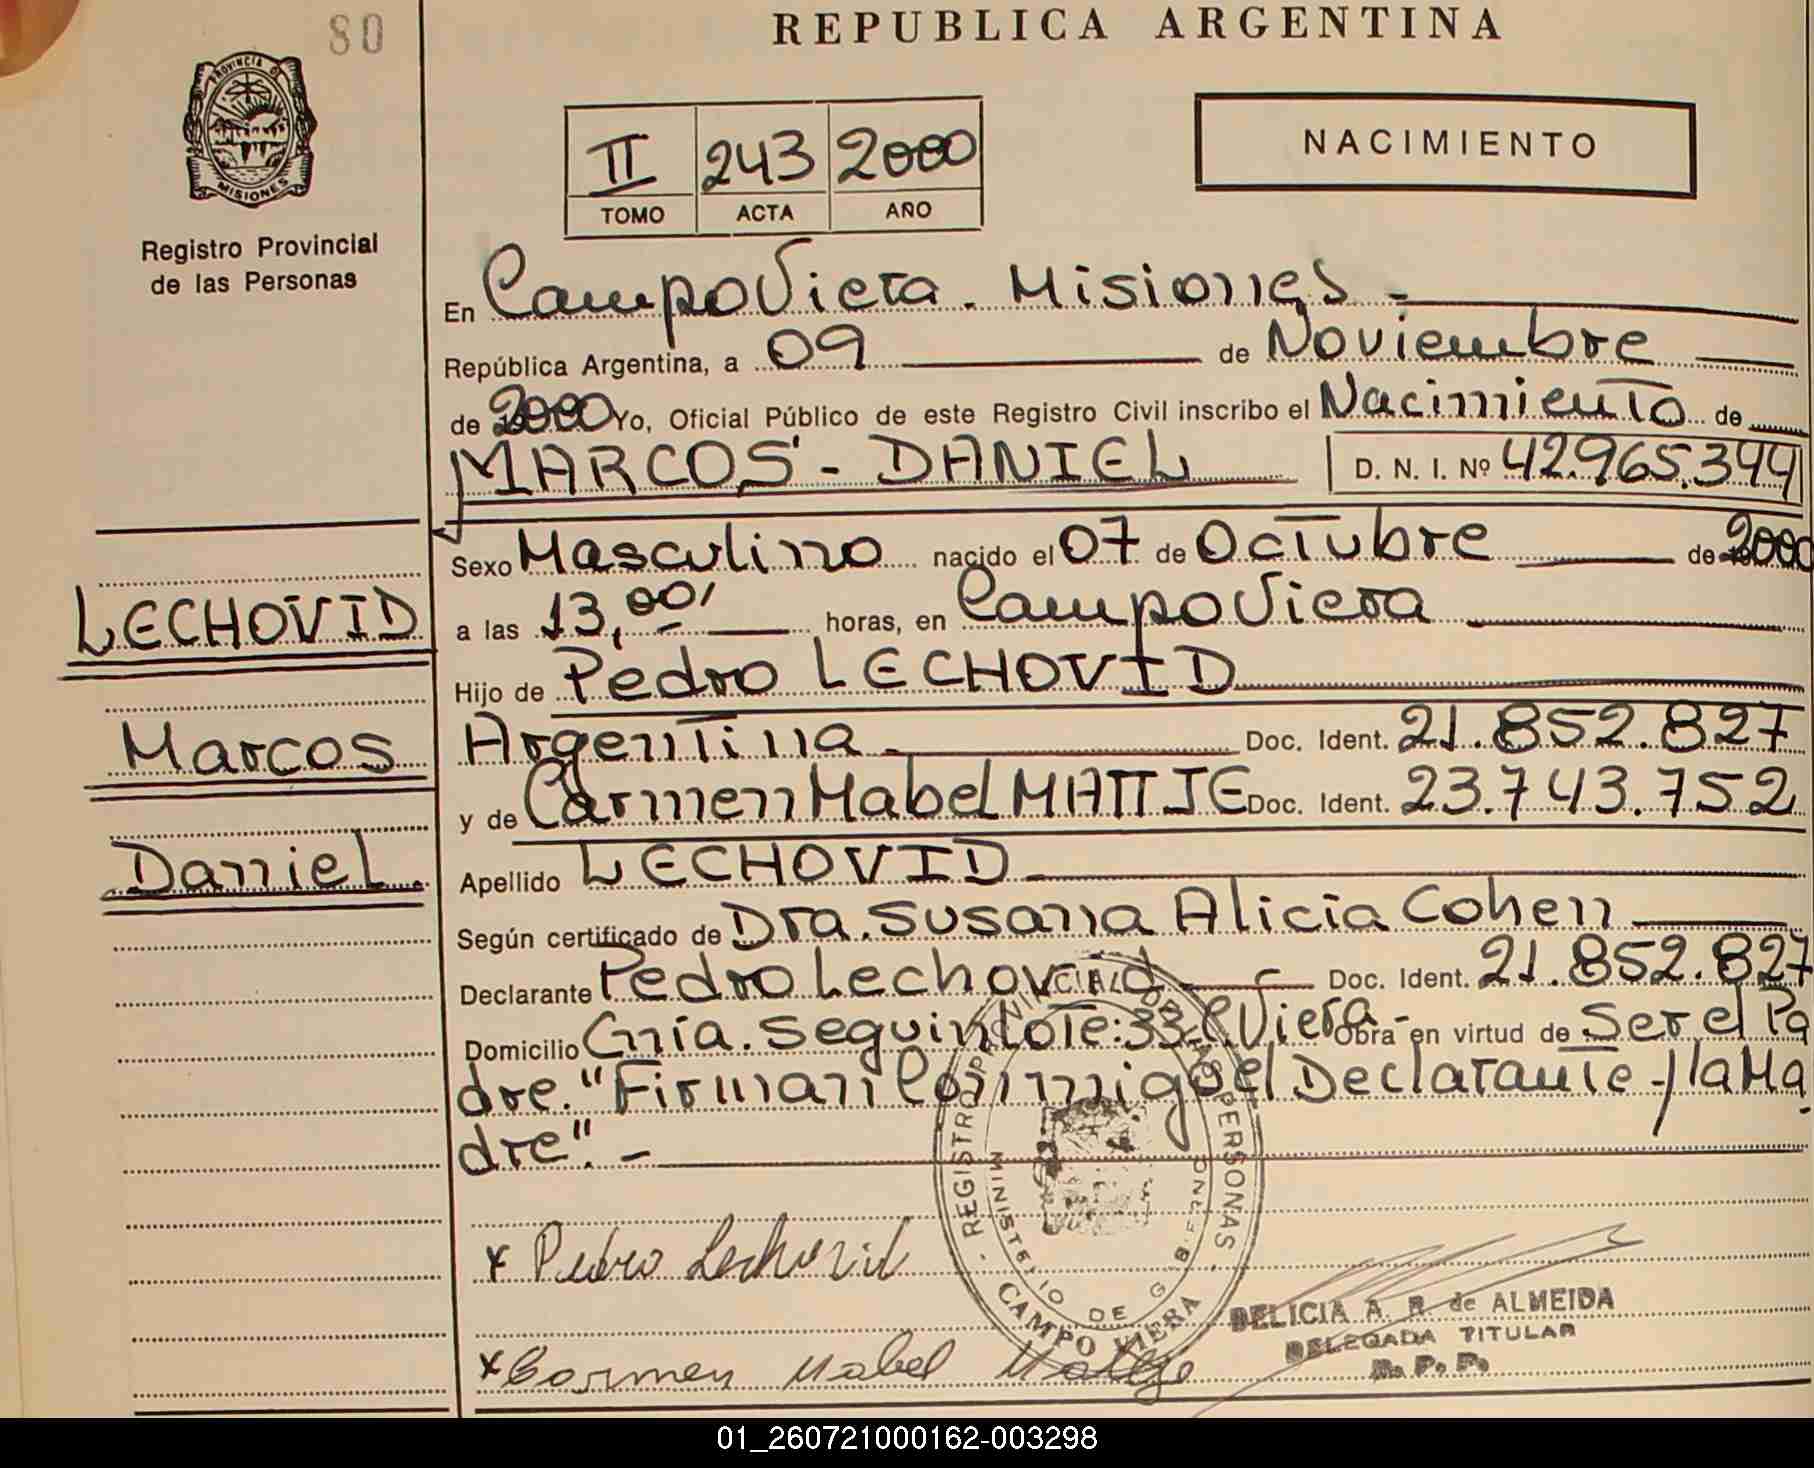 80
REPUBLICA ARGENTINA
PROVINCIA D
MISIONES
Registro Provincial
de las Personas
II 243 2000
TOMO ACTA AÑO
NACIMIENTO
En Campo Viera. Misiones -
República Argentina, a 09 de Noviembre
de 2000 Yo, Oficial Público de este Registro Civil inscribo el Nacimiento de
MARCOS - DANIEL D. N. I. Nº 42.965.344
Sexo Masculino nacido el 07 de Octubre de 2000
a las 13,00' horas, en Campo Viera
Hijo de Pedro LECHOVID
Argentina - Doc. Ident. 21.852.827
y de Carmen Mabel MATTJE Doc. Ident. 23.743.752
Apellido LECHOVID
Según certificado de Dra. Susana Alicia Cohen
Declarante Pedro Lechovid Doc. Ident. 21.852.827
Domicilio Cnia. Seguin Lote: 33 C. Viera - Obra en virtud de Ser el Pa
dre. "Firman Conmigo el Declarante y la Ma
dre". -
LECHOVID
Marcos
Daniel.
REGISTRO PROVINCIAL DE LAS PERSONAS
MINISTERIO DE GOBIERNO
CAMPO VIERA
x Pedro Lechovid
x Carmen Mabel
DELICIA A. R. de ALMEIDA
DELEGADA TITULAR
R. P. P.
01_260721000162-003298